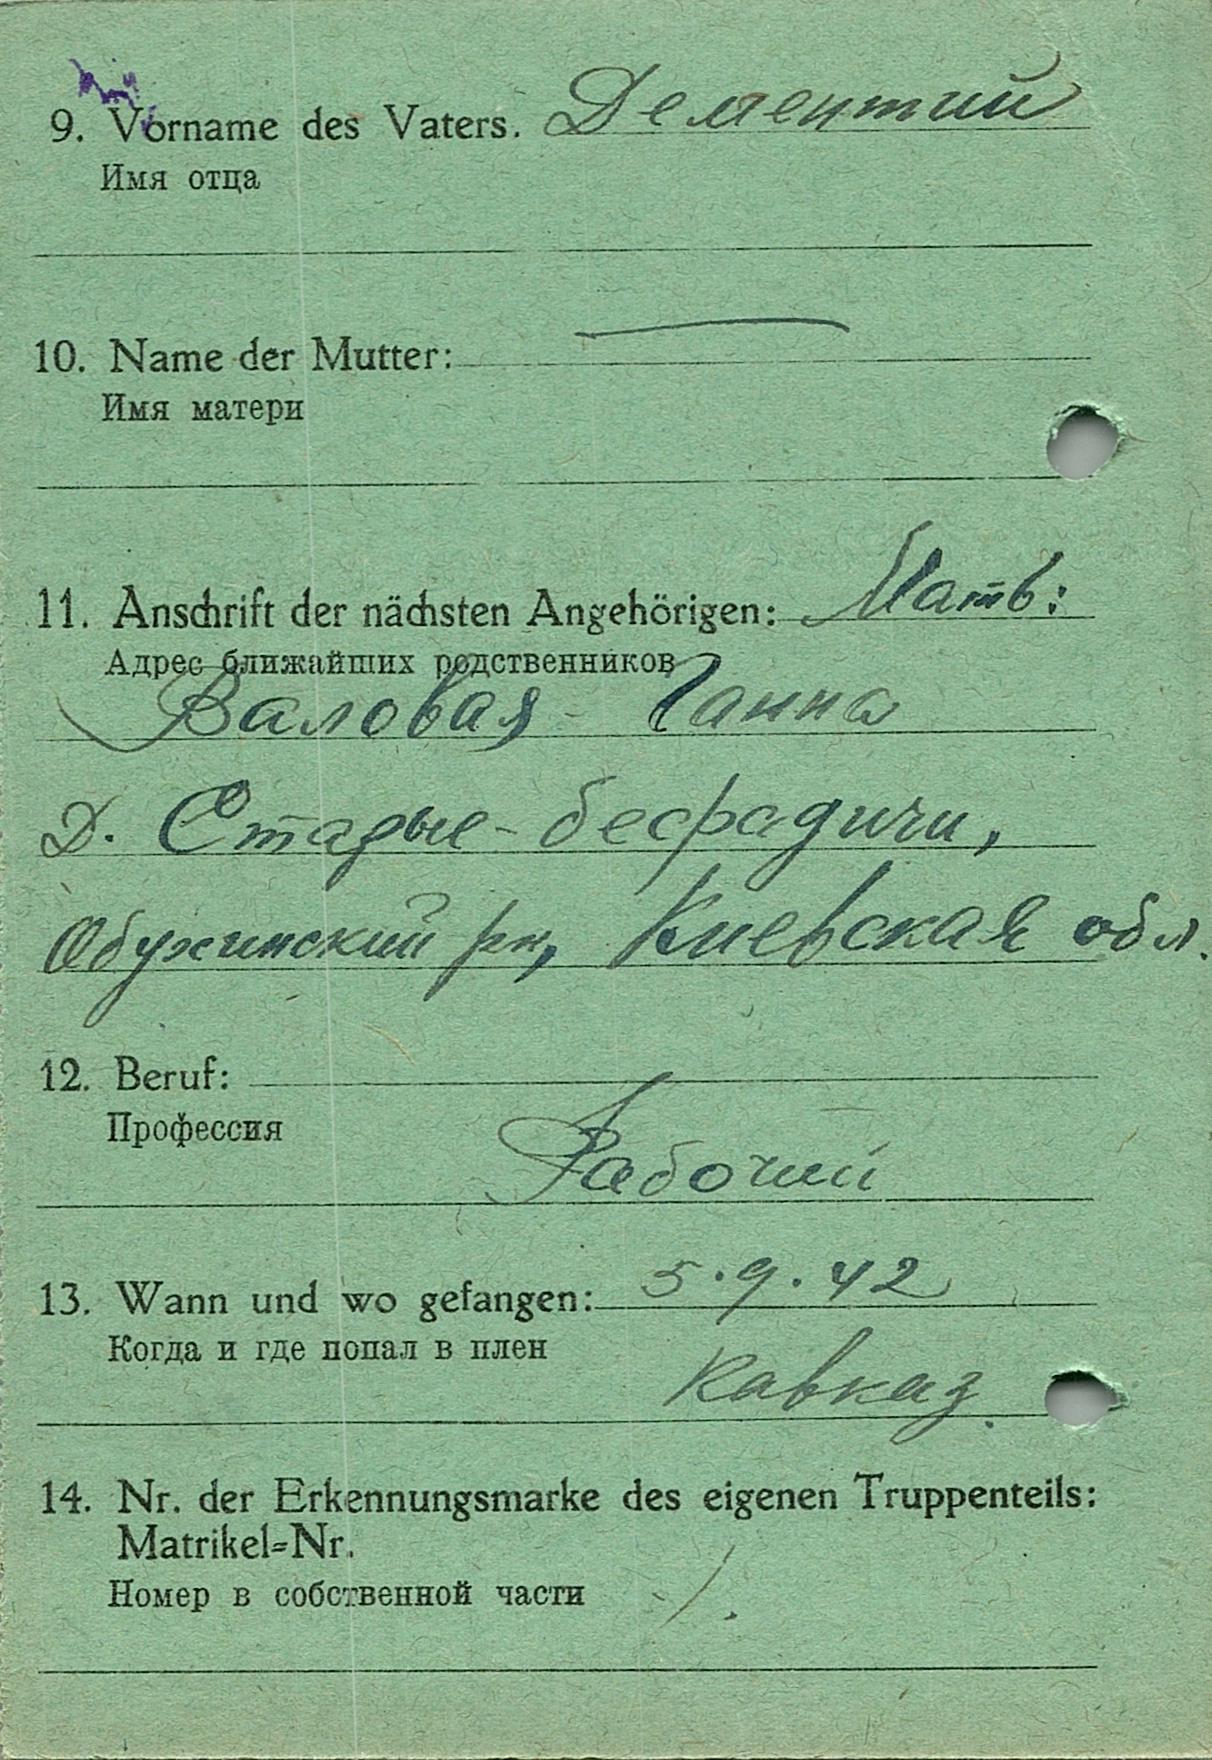 9. Vorname des Vaters. Дементий
Имя отца
10. Name der Mutter: —
Имя матери
11. Anschrift der nächsten Angehörigen: Мать:
Адрес ближайших родственников
Валовая Ганна
Д. Старые-бесрадичи,
Обухинский рн, Киевская обл.
12. Beruf:
Профессия
Рабочий
13. Wann und wo gefangen: 5.9.42
Когда и где попал в плен
Кавказ.
14. Nr. der Erkennungsmarke des eigenen Truppenteils:
Matrikel=Nr.
Номер в собственной части /.